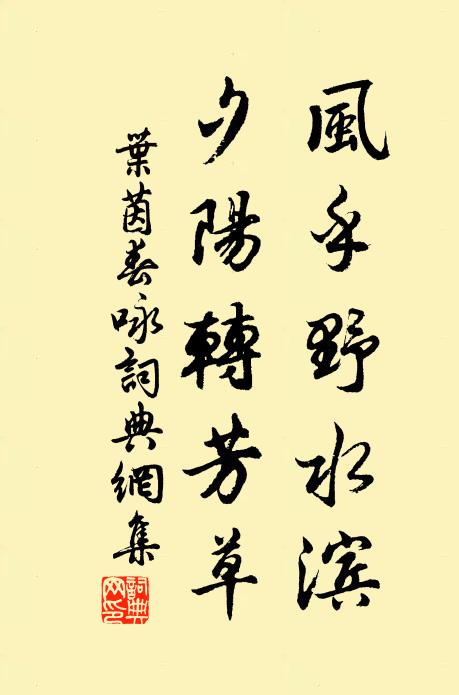 風乎野水滨
夕陽轉芳草
葉茵春咏詞典網集
詞典
网印